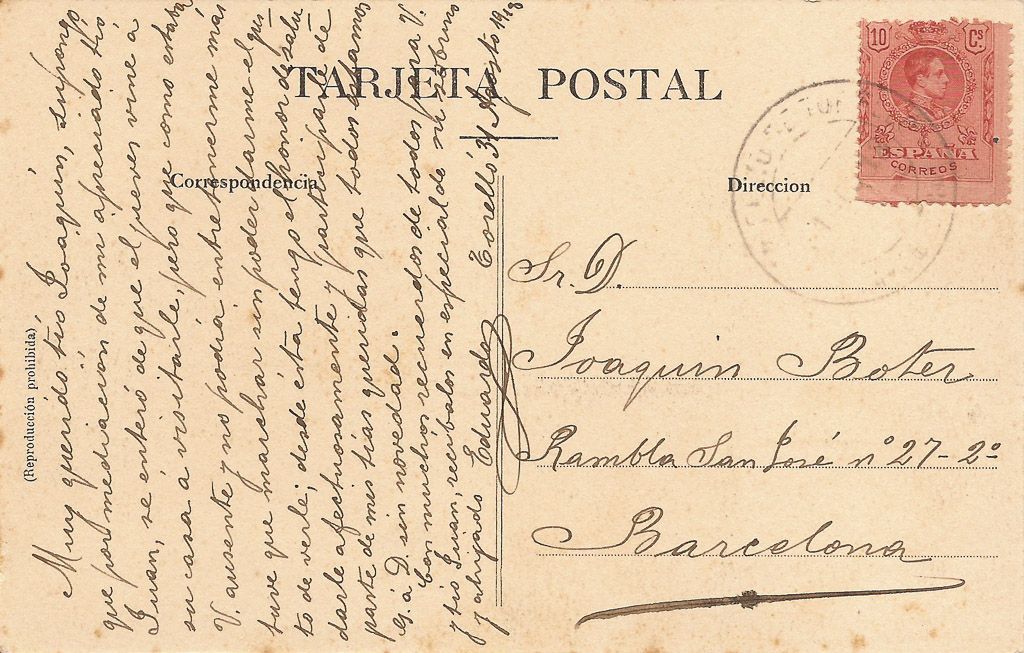 TARJETA POSTAL
Correspondencia
Direccion
(Reproducción prohibida)
10 Cs
ESPAÑA
CORREOS
Torelló 31 Agosto 1918
Muy querido tío Joaquín, supongo
que por mediación de mi apreciado tío
Juan, se enteró de que el jueves vine á
su casa á visitarle, pero que como estaba
V. ausente y no podía entretenerme más
tuve que marchar sin poder darme el gus-
to de verle; desde ésta tengo el honor de salu
darle afectuosamente y participarle de
parte de mis tías queridas que todos estamos
G. á D. sin novedad.
Con muchos recuerdos de todos para V.
y tío Juan, recíbalos en especial de su sobrino
y ahijado Eduardo
Sr. D.
Joaquin Boter
Rambla San José nº 27-2º
Barcelona